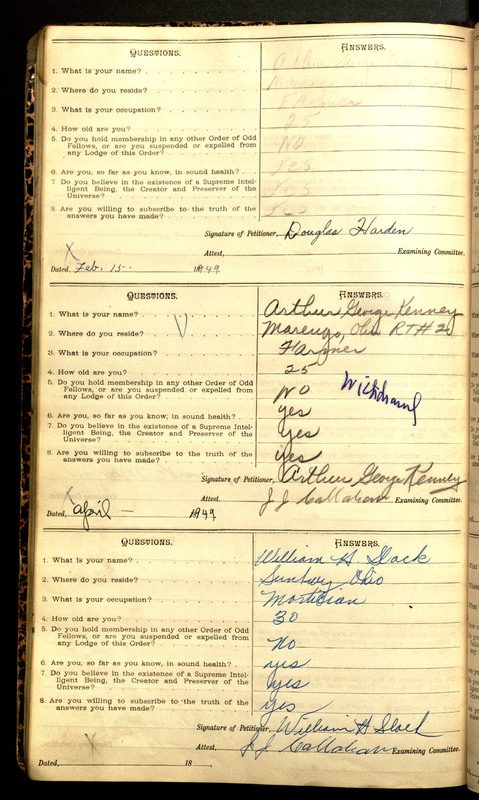 QUESTIONS. ANSWERS.
1. What is your name? Arthur
2. Where do you reside?
3. What is your occupation? Farmer
4. How old are you? 25
5. Do you hold membership in any other Order of Odd
Fellows, or are you suspended or expelled from
any Lodge of this Order? No
6. Are you, so far as you know, in sound health? Yes
7. Do you believe in the existence of a Supreme Intel-
ligent Being, the Creator and Preserver of the
Universe? Yes
8. Are you willing to subscribe to the truth of the
answers you have made? Yes
Signature of Petitioner, Douglas Harden
Attest, Examining Committee.
X
Dated, Feb. 15. 1949
QUESTIONS. ANSWERS.
1. What is your name? Arthur George Kenney
2. Where do you reside? V Marengo, Ohio RT # 2
3. What is your occupation? Farmer
4. How old are you? 25
5. Do you hold membership in any other Order of Odd
Fellows, or are you suspended or expelled from
any Lodge of this Order? NO
6. Are you, so far as you know, in sound health? yes
7. Do you believe in the existence of a Supreme Intel-
ligent Being, the Creator and Preserver of the
Universe? yes
8. Are you willing to subscribe to the truth of the
answers you have made? yes
Signature of Petitioner, Arthur George Kenney
Attest, J J Callaham Examining Committee.
X
Dated, April — 1949
QUESTIONS. ANSWERS.
1. What is your name? William H Slack
2. Where do you reside? Sunbury Ohio
3. What is your occupation? Mortician
4. How old are you? 30
5. Do you hold membership in any other Order of Odd
Fellows, or are you suspended or expelled from
any Lodge of this Order? No
6. Are you, so far as you know, in sound health? yes
7. Do you believe in the existence of a Supreme Intel-
ligent Being, the Creator and Preserver of the
Universe? yes
8. Are you willing to subscribe to the truth of the
answers you have made? yes
Signature of Petitioner, William H Slack
Attest, J J Callaham Examining Committee.
X
Dated, 18